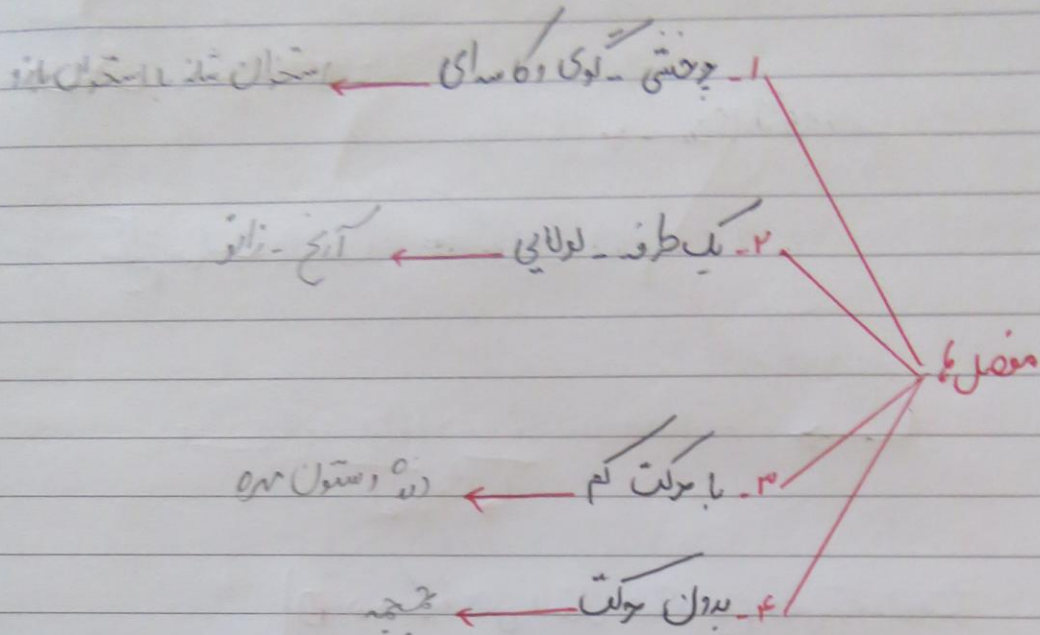 مفصل ها
۱- چرخشی - گوی و کاسه‌ای ← استخوان بازو
۲- یک طرفه - لولایی ← آرنج - زانو
۳- با حرکت کم ← دنده و ستون مهره
۴- بدون حرکت ← جمجمه